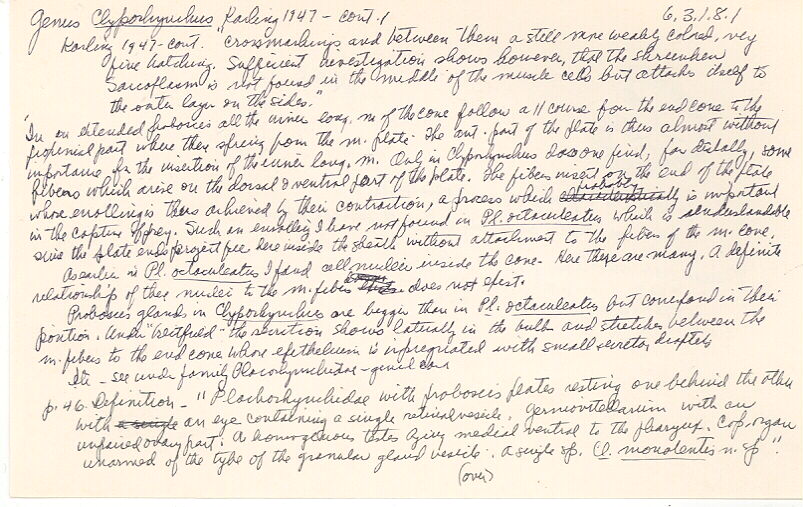 Genus Clyporhynchus Karling 1947 - cont. 1 6.3.1.8.1
Karling 1947 - cont. "crossmarkings and between them a still more weakly colored, very
fine hatching. Sufficient investigation shows however, that the shrunken
Sarcoplasm is not found in the middle of the muscle cells but attaches itself to
the outer layer on the sides."
"In an extended proboscis all the inner long. m. of the cone follow a 11 course from the end cone to the
proximal part where they spring from the m. plate. The ant. part of the plate is thus almost without
importance for the insertion of the inner long. m. Only in Clyporhynchus does one find, far distally, some
fibers which arise on the dorsal & ventral part of the plate. The fibers insert on the end of the plate
whose enrolling is thus achieved by their contraction, a process which probably is important
in the capture of prey. Such an enrolling I have not found in Pl. octaculeatus which is understandable
since the plate ends project free here inside the sheath without attachment to the fibers of the m. cone.
As earlier in Pl. octaculeatus I found cell nuclei inside the cone. Here there are many. A definite
relationship of these nuclei to the m. fibers does not exist.
Proboscis glands in Clyporhynchus are bigger than in Pl. octaculeatus but correspond in their
position. Under "Westfeld" the secretion shows laterally in the bulb and stretches between the
m. fibers to the end cone whose epithelium is impregnated with small secretory droplets
Etc - see under family Placorhynchidae - general
p. 46. Definition - "Placorhynchidae with proboscis plates resting one behind the other
with an eye containing a single retinal vesicle. Germovitellarium with an
unpaired ovary part. A homogenous testes lying medial ventral to the pharynx. Cop. organ
unarmed of the type of the granular gland vesicle. A single sp. Cl. monolentis n. sp."
(over)